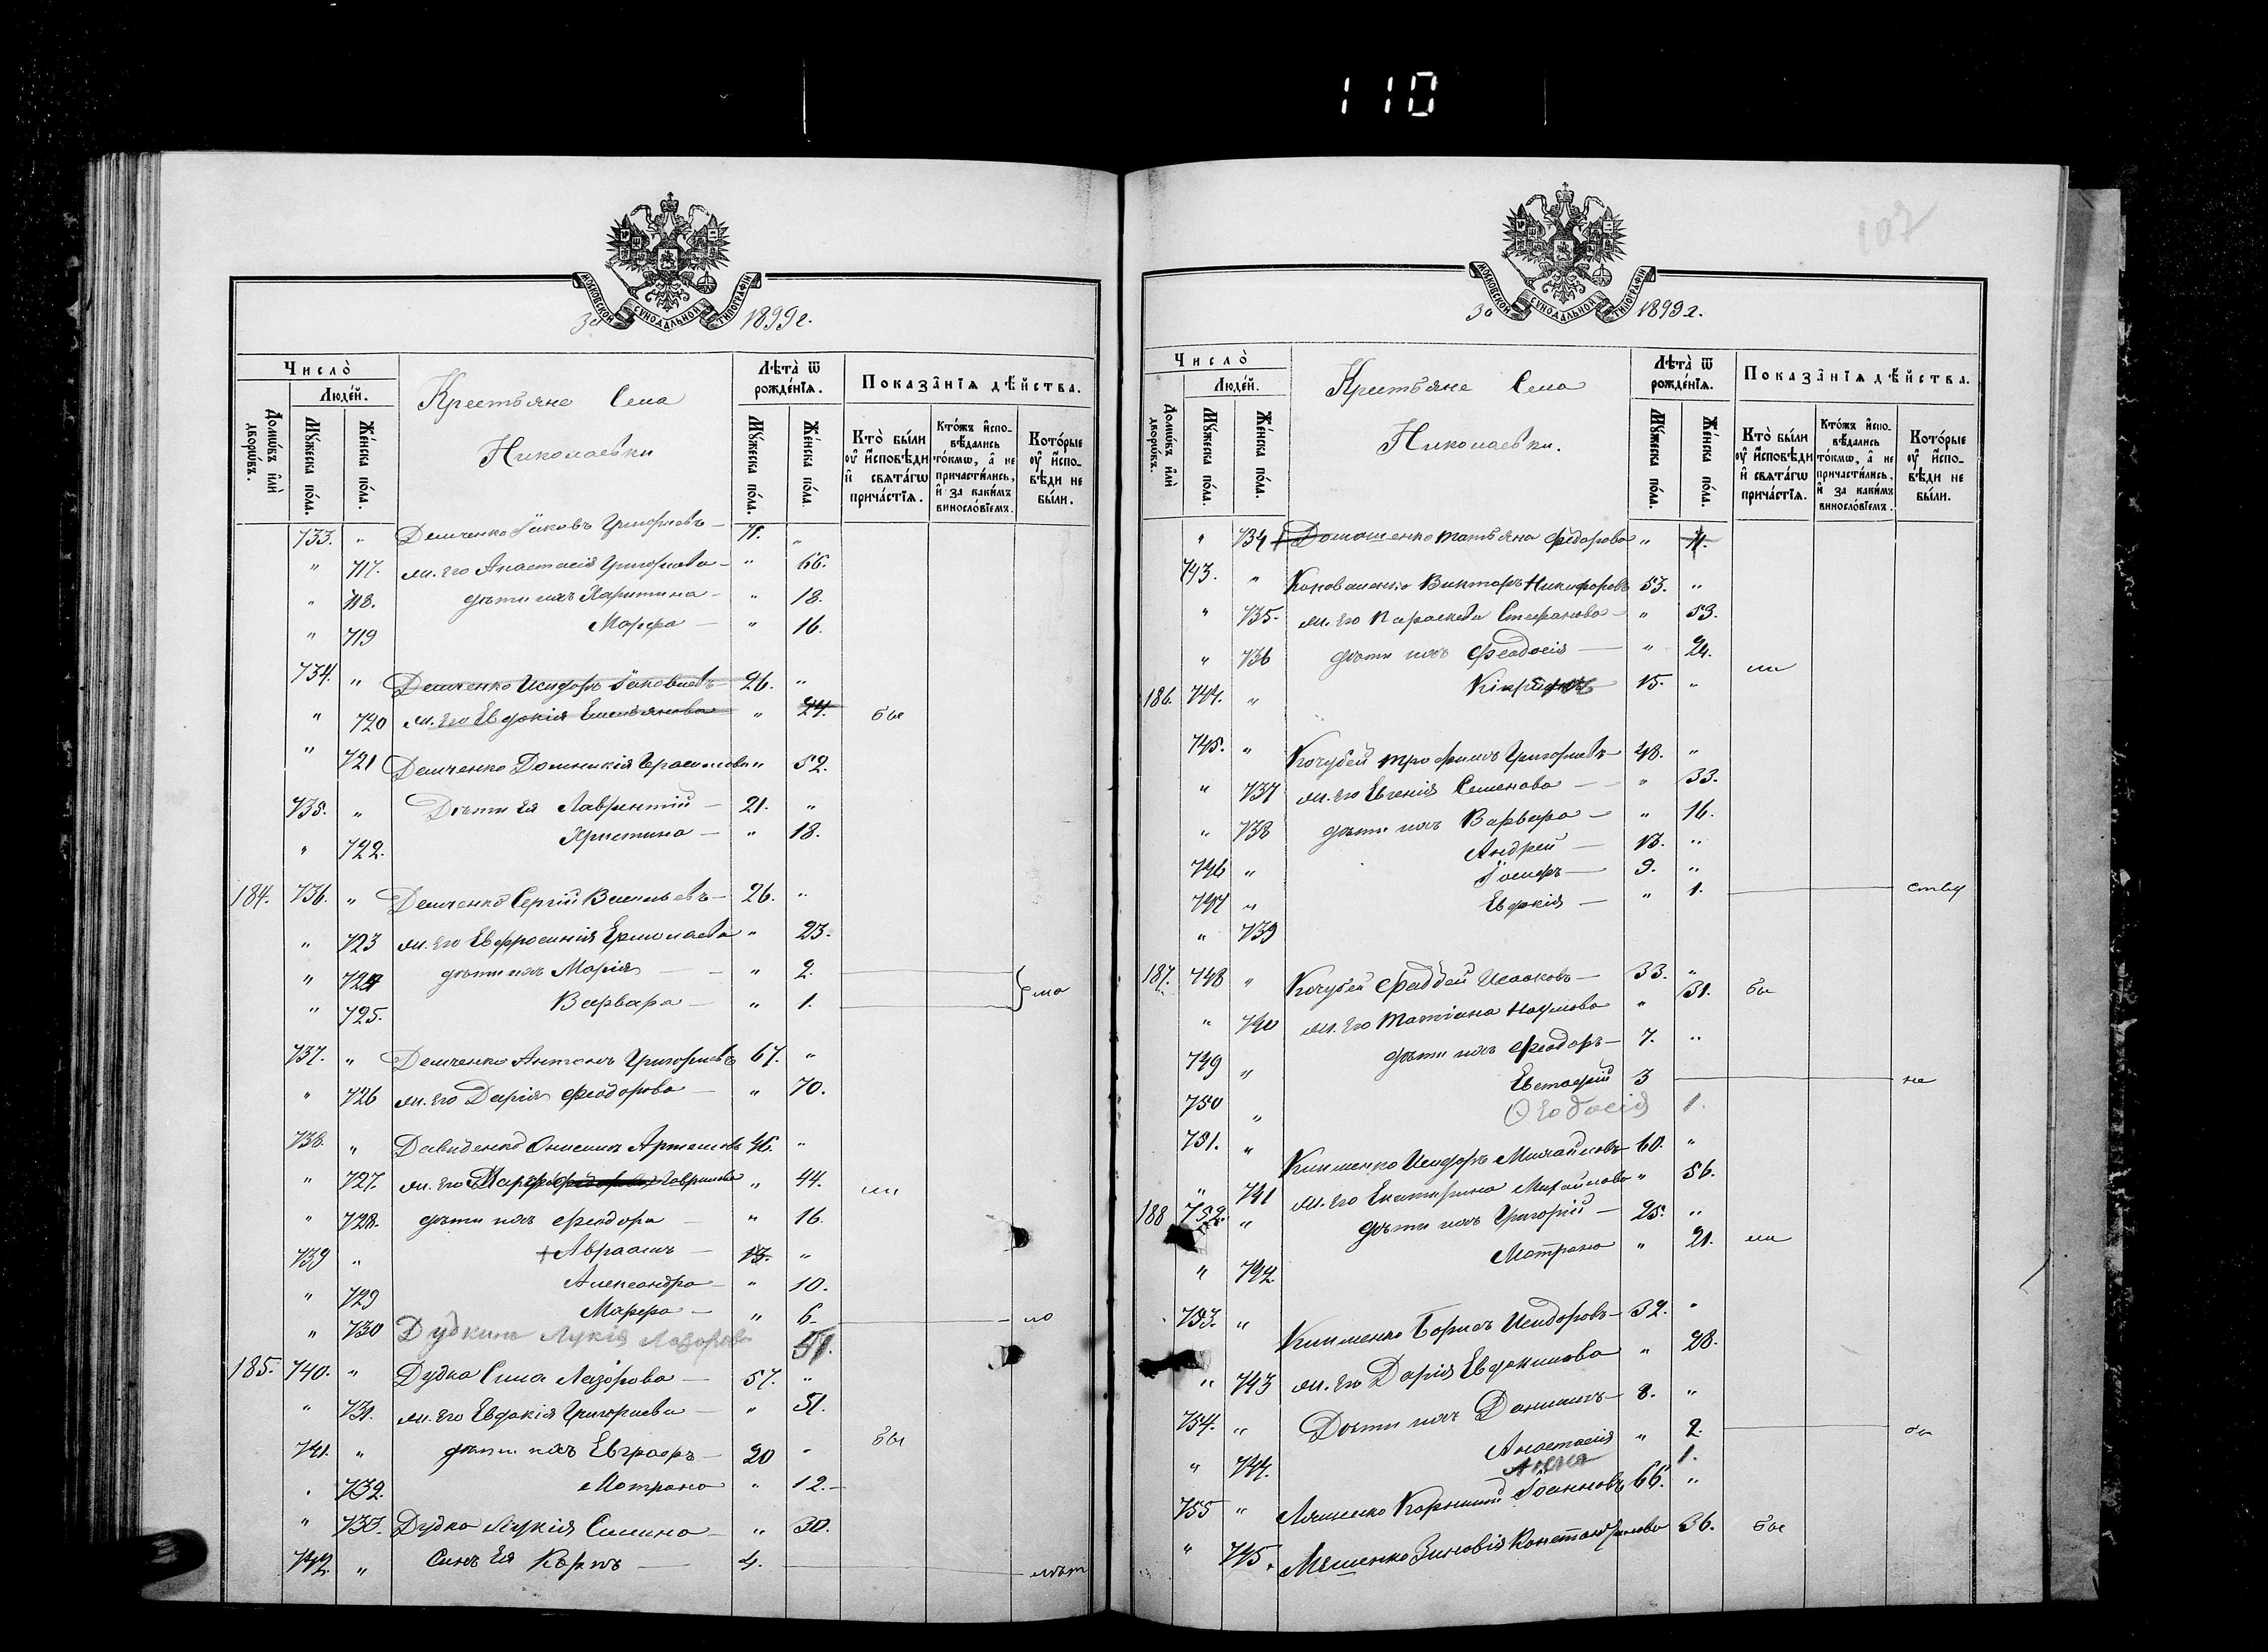 110
МОСКОВСКОЙ СѴНОДАЛЬНОЙ ТИПОГРАФІИ
За 1899 г.
Число̀
Людей.
Домѡвъ или дворѡвъ.
Мꙋжеска пола.
Женска пола.
Крестьяне Села
Николаевки
Лѣта ѿ рожденїѧ.
Мꙋжеска пола.
Женска пола.
Показанїѧ дѣйства.
Кто были ᲂу исповѣди и свѧтагѡ причастїѧ.
Ктожъ исповѣдались токмѡ, а не причастились, и за какимъ винословїемъ.
Которые ᲂу исповѣди не были.
733. " Демченко Іаковъ Григорьевъ — 71. "
" 717. ж. его Анастасія Григорьева — " 66.
" 718. дѣти ихъ Харитина — " 18.
" 719 Марфа — " 16.
734. " Демченко Исидоръ Іаковлевъ — 26. "
" 720 ж. его Евдокія Емельянова " 24. бы
" 721 Демченко Домникія " 52.
735. " Дѣти ея Лаврентій — 21. "
" 722. Христина — " 18.
184. 736. " Демченко Сергій Васильевъ — 26. "
" 723 ж. его Евфросинія Ермолаева " 23.
" 724 дѣти ихъ Марія — " 2.
" 725. Варвара — " 1. } мо
737. " Демченко Антонъ Григорьевъ 67. "
" 726 ж. его Дарія Феодорова — " 70.
738. " Давиденко Онисимъ Артемовъ 46. "
" 727. ж. его Марфа Гаврилова " 44. ли
" 728. дѣти ихъ Феодора — " 16.
739 " + Авраамъ — 13. "
" 729 Александра — " 10.
" 730 Марфа — " 6. ло
Дудкина Лукія Лазорова 51.
185. 740. " Дудка Сила Лазорова — 57. "
" 731. ж. его Евдокія Григорьева — " 51.
741. " дѣти ихъ Евграфъ — 20 " бы
" 732. Мотрона " 12. —
" 733. Дудка Лукія Силина — " 30.
742. " Сынъ ея Карпъ — 4. лѣт
107
МОСКОВСКОЙ СѴНОДАЛЬНОЙ ТИПОГРАФІИ
За 1899 г.
Число̀
Людей.
Домѡвъ или дворѡвъ.
Мꙋжеска пола.
Женска пола.
Крестьяне Села
Николаевки.
Лѣта ѿ рожденїѧ.
Мꙋжеска пола.
Женска пола.
Показанїѧ дѣйства.
Кто были ᲂу исповѣди и свѧтагѡ причастїѧ.
Ктожъ исповѣдались токмѡ, а не причастились, и за какимъ винословїемъ.
Которые ᲂу исповѣди не были.
" 734 Домашенко Татьяна Федорова " 71.
743. " Коноваленко Викторъ Никифоровъ 53. "
" 735. ж. его Параскева Стефанова — " 53.
" 736 дѣти ихъ Феодосія — " 24. ли
186. 744. " 15. "
745. " Кочубей Трофимъ Григорьевъ — 48. "
" 737 ж. его Евгенія Семенова — " 33.
" 738 дѣти ихъ Варвара — " 16.
746 " Андрей — 13. "
747 " Іосифъ — 9. "
" 739 Евдокія — " 1. ству
187. 748 " Кочубей Фаддей Исааковъ — 33. "
" 740 ж. его Татіана Наумова " 31. бы
749 " дѣти ихъ Феодоръ — 7. "
750 " Евстафій 3 не
Феодосія 1.
751. " Клименко Исидоръ Михайловъ 60. "
" 741 ж. его Екатерина Михайлова " 56.
188 752. " дѣти ихъ Григорій — 25. "
" 742. Мотрона " 21. ли
753. " Клименко Борисъ Исидоровъ — 32. "
" 743 ж. его Дарія Евдокимова " 28.
754. " Дѣти ихъ Даніилъ — 8. "
" 744. Анастасія " 2. бы
Анна 1.
755 " Ляшенко Корнилій Іоанновъ 66. "
" 745. Ляшенко Зиновія 36. бы